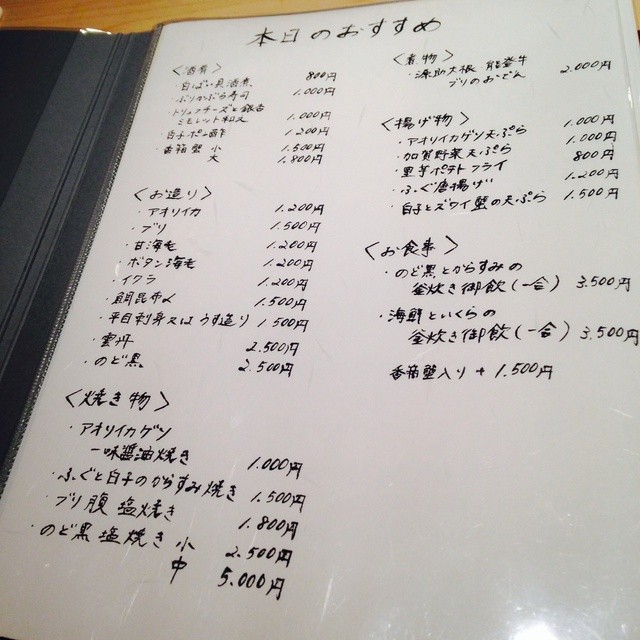 本日のおすすめ
〈酒肴〉
・白ばい貝酒煮 800円
ぶりかぶら寿司 1.000円
・トリュフチーズと銀杏
ミモレット和え 1.000円
白子ポン酢 1.200円
香箱蟹 小 1.500円
大 1.800円
〈お造り〉
・アオリイカ 1.200円
・ブリ 1.500円
・甘海老 1.200円
・ボタン海老 1.200円
・イクラ 1.200円
・真鯛昆布〆 1.500円
・平目刺身又はうす造り 1.500円
・雲丹 2.500円
・のど黒 2.500円
〈焼き物〉
・アオリイカゲソ
一味醤油焼き 1.000円
・ふぐと白子のからすみ焼き 1.500円
・ブリ腹塩焼き 1.800円
・のど黒塩焼き 小 2.500円
中 5.000円
〈煮物〉
・源助大根 能登牛
ブリのおでん 2.000円
〈揚げ物〉
・アオリイカゲソ天ぷら 1.000円
・加賀野菜天ぷら 1.000円
・里芋ポテトフライ 800円
・ふぐ唐揚げ 1.200円
・白子とズワイ蟹の天ぷら 1.500円
〈お食事〉
・のど黒とからすみの
釜炊き御飯(一合) 3.500円
・海鮮といくらの
釜炊き御飯(一合) 3.500円
香箱蟹入り + 1.500円